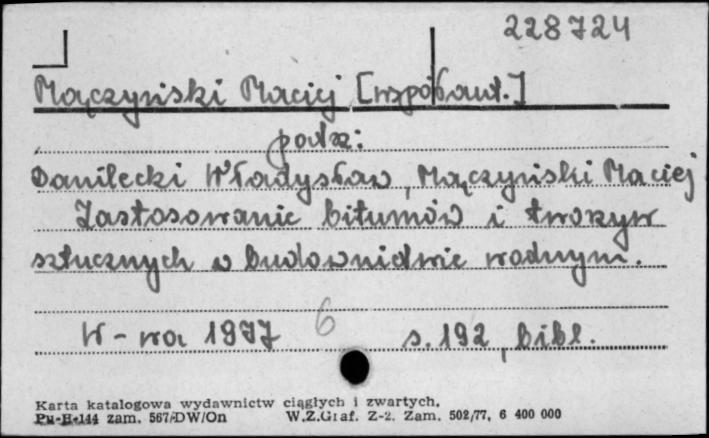 228724
Mączyński Maciej [współaut.]
patrz:
Danilecki Władysław, Mączyński Maciej
Zastosowanie bitumów i tworzyw
sztucznych w budownictwie wodnym.
W-wa 1977 6 s. 192, bibl.
Karta katalogowa wydawnictw ciągłych i zwartych.
Pu-H-144 zam. 567/DW/On W.Z.Graf. Z-2. Zam. 502/77, 6 400 000